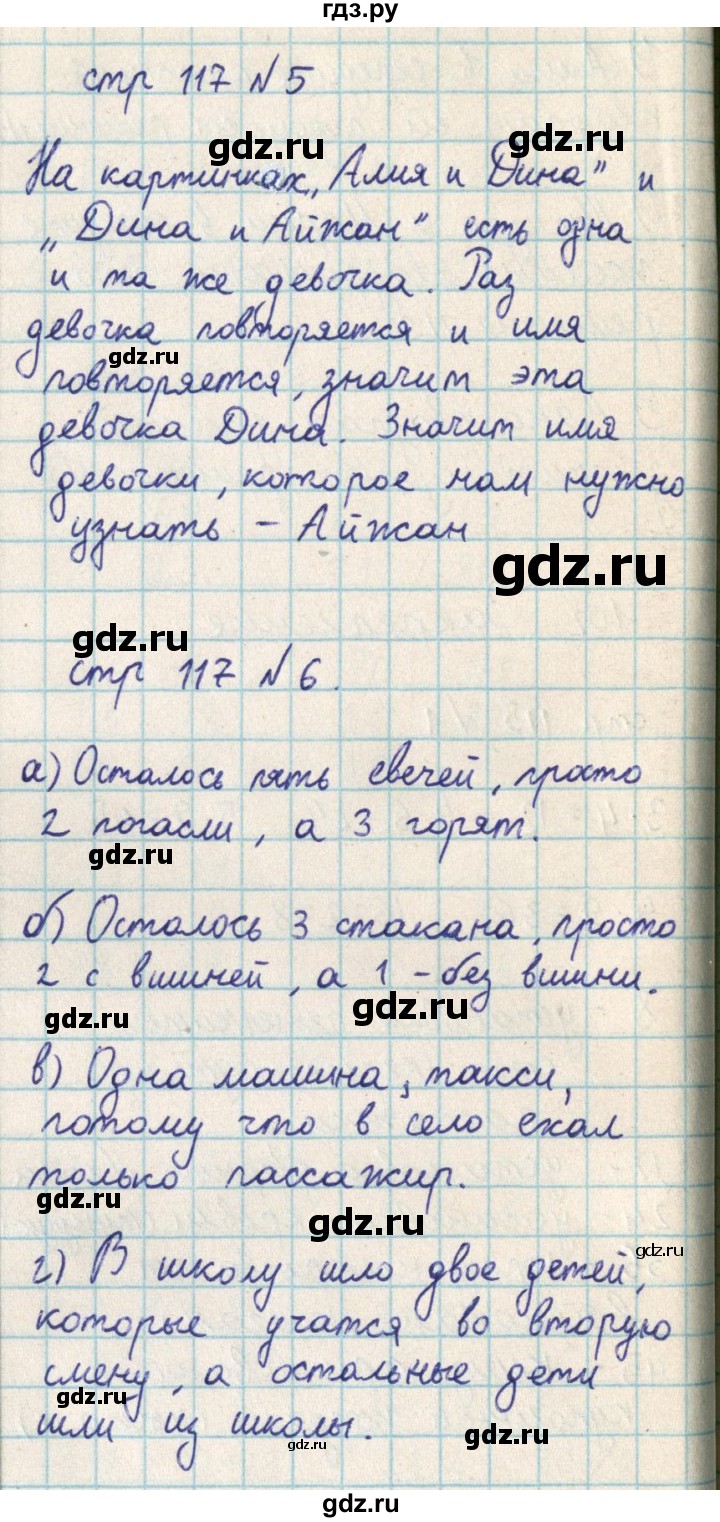 гдз.ру
стр 117 №5
gdz.ru
gdz.ru
На картинках „Алия и Дина" и
„Дина и Айжан" есть одна
и та же девочка. Раз
девочка повторяется и имя
gdz.ru
повторяется, значит эта
девочка Дина. Значит имя
девочки, которое нам нужно
узнать – Айжан
gdz.ru
gdz.ru
стр 117 №6.
а) Осталось пять свечей, просто
2 погасли, а 3 горят.
gdz.ru
б) Осталось 3 стакана, просто
2 с вишней, а 1 – без вишни.
gdz.ru
gdz.ru
в) Одна машина, такси,
потому что в село ехал
только пассажир.
gdz.ru
gdz.ru
gdz.ru
г) В школу шло двое детей,
которые учатся во вторую
смену, а остальные дети
gdz.ru
шли из школы.
gdz.ru
gdz.ru
gdz.ru